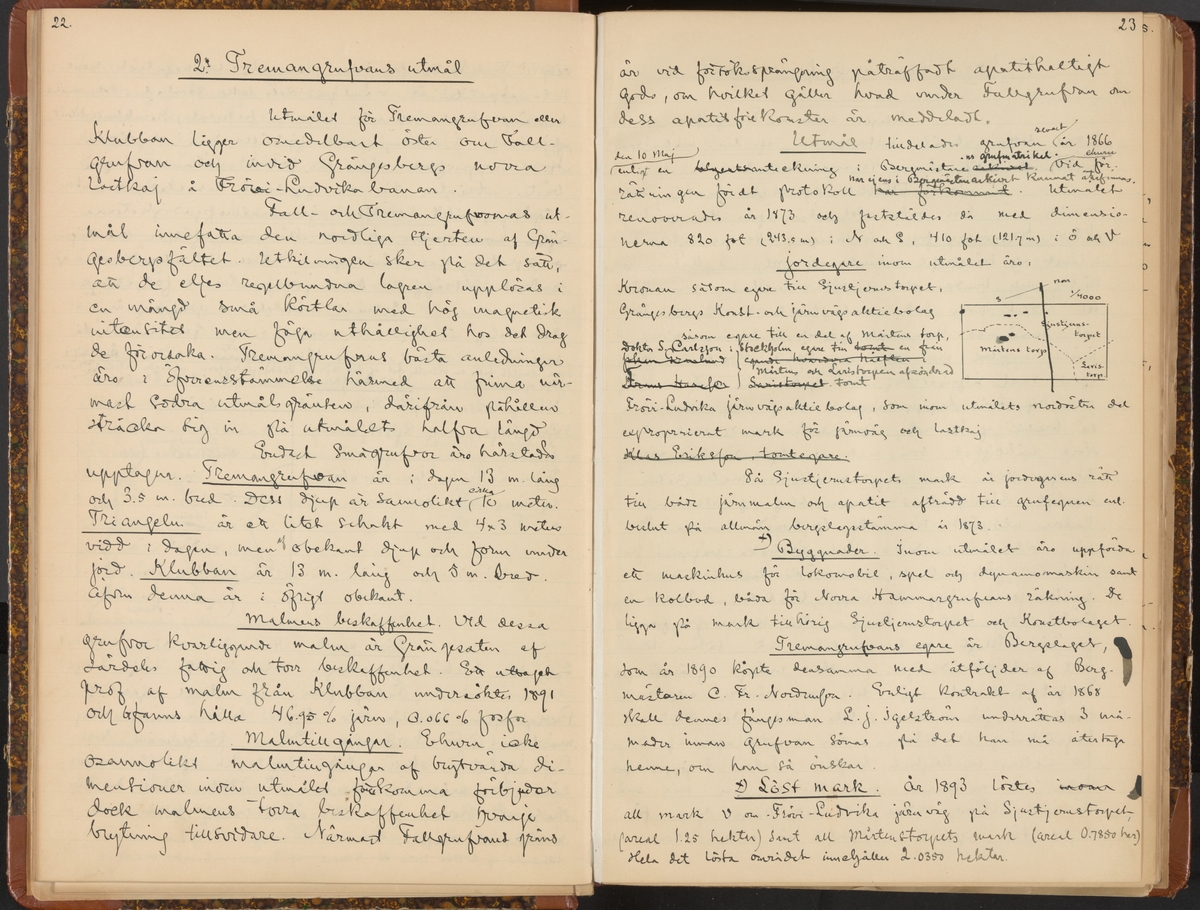 22.
2: Tremangrufvans utmål
Utmålet för Tremangrufvan eller
Klubban ligger omedelbart öster om Fall-
grufvan och invid Grängesbergs norra
lastkaj å Frövi-Ludvikabanan.
Fall- och Tremangrufvornas ut-
mål innefatta den nordliga stjerten af Grän-
gesbergsfältet. Utkilningen sker på det sätt,
att de eljes regelbundna lagren upplösas i
en mängd små körtlar med hög magnetisk
intensitet men föga uthållighet hos det drag
de förorsaka. Tremangrufvans bästa anledningar
äro i öfverensstämmelse härmed att finna när-
mast södra utmålsgränsen, därifrån påhållen
sträcka sig in på utmålets halfva längd
Endast smågrufvor äro härstädes
upptagna. Tremangrufvan är i dagen 13 m. lång
och 3.5 m. bred. Dess djup är sannolikt cirka 10 meter.
Triangeln är ett litet schakt med 4x3 meters
vidd i dagen, men af obekant djup och form under
jord. Klubban är 13 m. lång och 5 m. bred.
Äfven denna är i öfrigt obekant.
Malmens beskaffenhet. Vid dessa
grufvor kvarliggande malm är Grängesaten af
särdeles fattig och torr beskaffenhet. Ett uttaget
prof af malm från Klubban undersöktes 1891
och befanns hålla 46.95 % järn, 0.066 % fosfor
Malmtillgångar. Ehuru icke
osannolikt malmtillgångar af brytvärda di-
mensioner inom utmålet förekomma förbjuder
dock malmens torra beskaffenhet hvarje
brytning tillsvidare. Närmast Fallgrufvans gräns
23
är vid försökssprängning påträffadt apatithaltigt
gods, om hvilket gäller hvad under Fallgrufvan om
dess apatitförekomster är meddeladt.
Utmål tilldelades grufvan senast år 1866
den 10 Maj enligt en anteckning i Bergmästare- grufmatrikel. Vid för-
rättningen fördt protokoll har ej ens i Bergmästarearkivet kunnat återfinnas. har förkommit. Utmålet
renoverades år 1873 och fastställdes då med dimensio-
nerna 820 fot (243.5 m) i N och S, 410 fot (121.7 m) i Ö och V
Jordegare inom utmålet äro:
Kronan såsom egare till Sjustjernstorpet,
Grängesbergs Konst- och järnvägsaktiebolag
såsom egare till en del af Mårtens torp,
Doktor S. Carlsson i Stockholm egare till en från
Mårtens och Laristorpen afsöndrad
Laristorpet tomt
N S
1/4000
Sjustjerns-
torpet
Mårtens torp
Laris-
torp.
Frövi-Ludvika järnvägsaktiebolag, som inom utmålets nordöstra del
exproprierat mark för järnväg och lastkaj
Klas Eriksson, tomtegare.
På Sjustjernstorpets mark är jordegarens rätt
till både järnmalm och apatit afträdd till grufegaren en-
bart på allmän bergslagsstämma år 1873.
+) Byggnader. Inom utmålet äro uppförda
ett maskinhus för lokomobil, spel och dynamomaskin samt
en kolbod, båda för Norra Hammargrufvans räkning. De
ligga på mark tillhörig Sjustjernstorpet och Konstbolaget.
Tremangrufvans egare är Bergslaget,
som år 1890 köpte densamma med åtföljder af Berg-
mästaren C. Fr. Nordengren. Enligt kontrakt af år 1868
skall dennes fångesman L. J. Igelström underrättas 3 må-
nader innan grufvan sönas på det han må återtaga
henne, om han så önskar.
+) Löst mark. År 1893 löstes inom
all mark V om Frövi-Ludvika järnväg på Sjustjernstorpet
(areal 1.25 hektar) samt all Mårtenstorpets mark (areal 0.7850 har)
Hela det lösta området innehåller 2.0350 hektar.